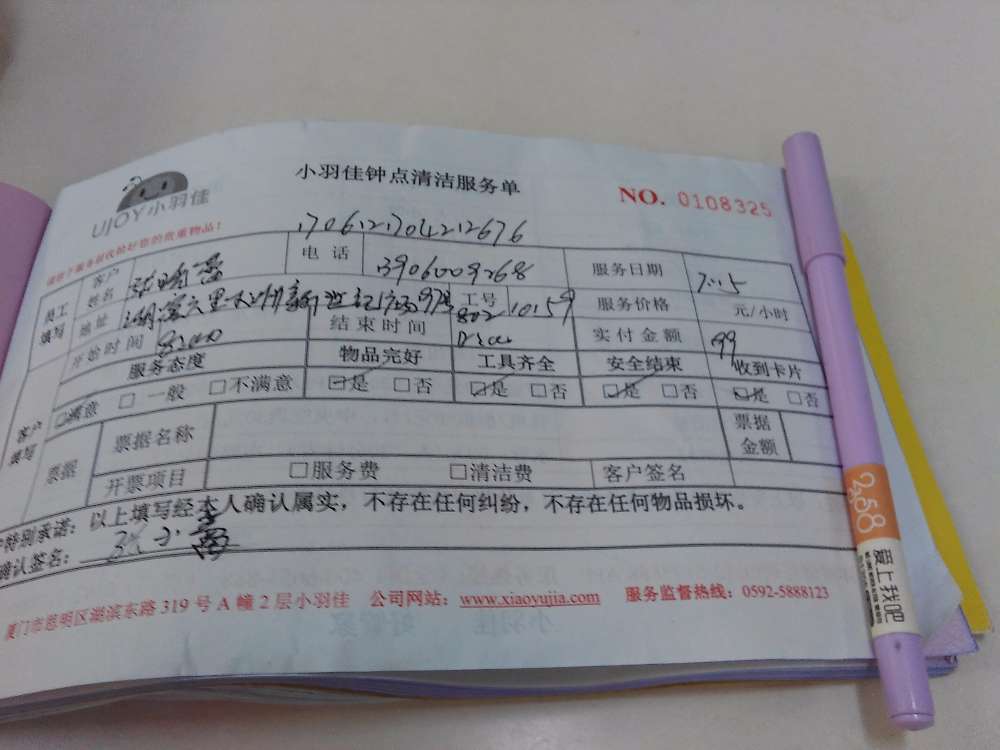 UJOY小羽佳
小羽佳钟点清洁服务单
NO. 0108325
请您于服务前收拾好您的贵重物品!
1706121704212676
员工填写 客户姓名 电话 3906009268 服务日期 7.15
地址 工号 802 10159 服务价格 元/小时
开始时间 结束时间 实付金额 99
服务态度 物品完好 工具齐全 安全结束 收到卡片
☑满意 □ 一般 □不满意 ☑是 □否 ☑是 □否 ☑是 □否 ☑是 □否
客户填写 票据 票据名称 票据金额
开票项目 □服务费 □清洁费 客户签名
特别承诺:以上填写经本人确认属实,不存在任何纠纷,不存在任何物品损坏。
确认签名:
厦门市思明区湖滨东路 319 号 A 幢 2 层小羽佳 公司网站:www.xiaoyujia.com 服务监督热线:0592-5888123
258
爱上我吧